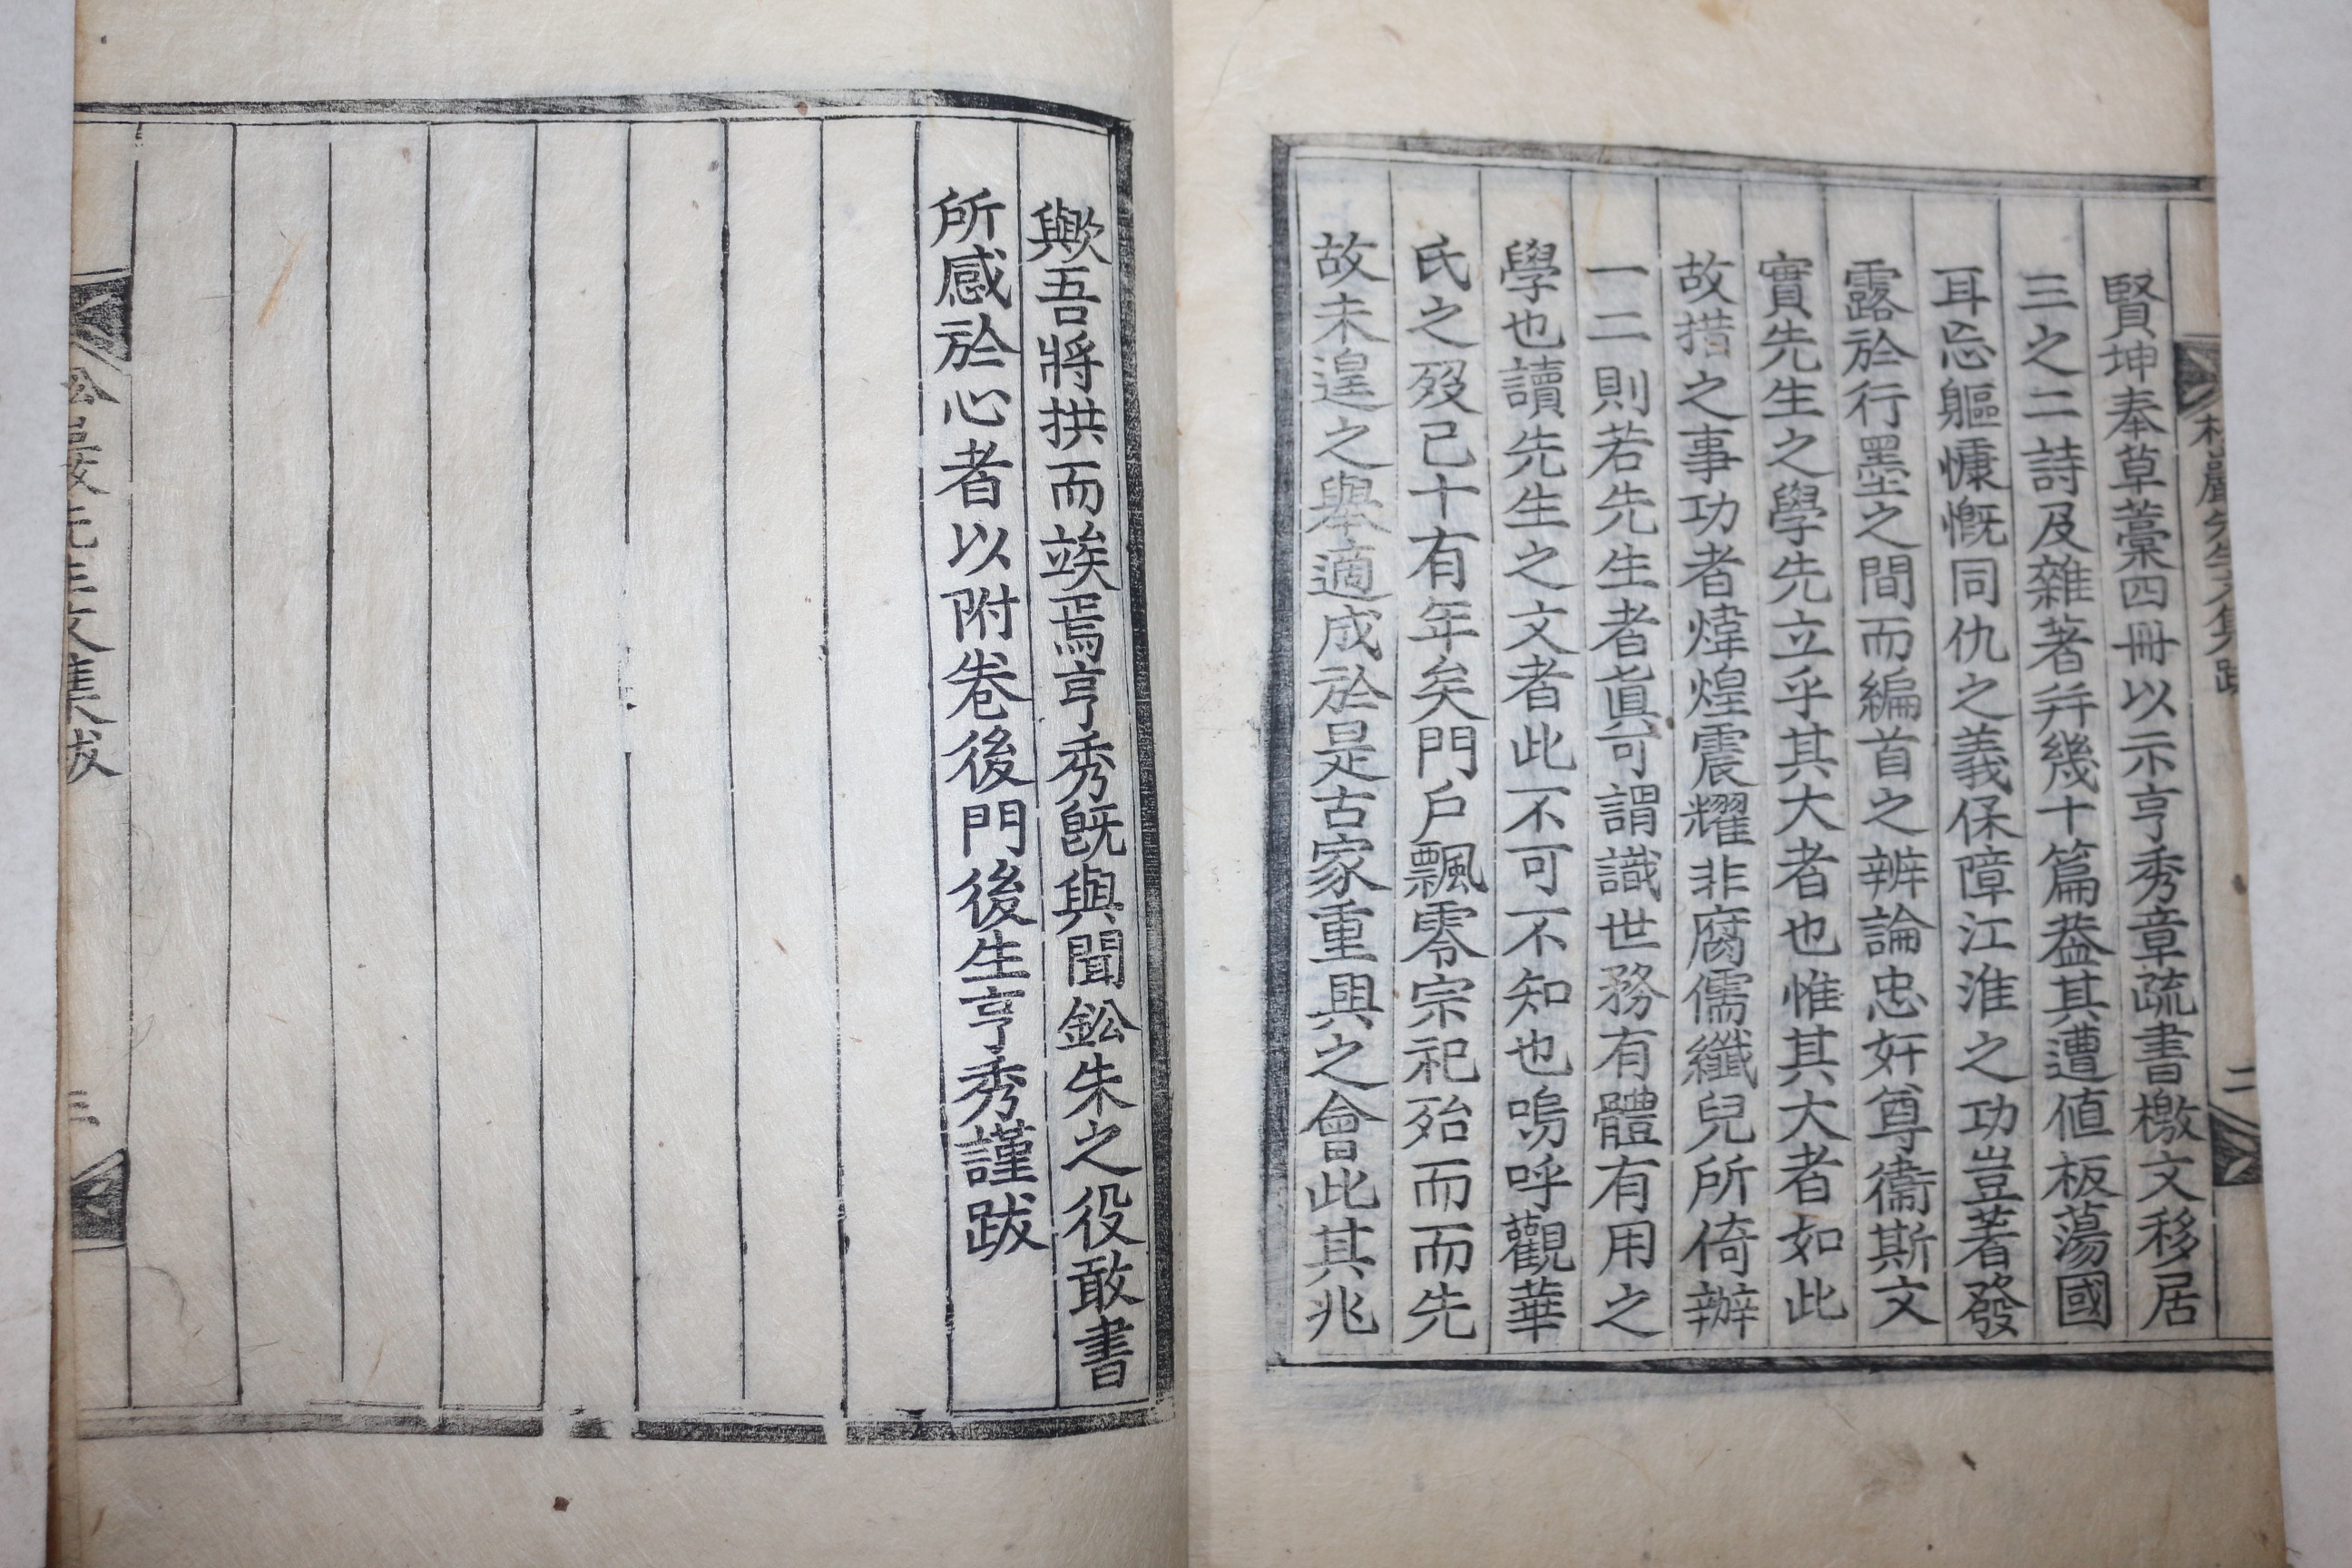 賢坤奉草藁四冊以示亨秀章疏書檄文移居
三之二詩及雜著幷幾十篇蓋其遭値板蕩國
耳忘軀慷慨同仇之義保障江淮之功豈著發
露於行墨之間而編首之辨論忠奸尊衞斯文
實先生之學先立乎其大者也惟其大者如此
故措之事功者煒煌震耀非腐儒纖兒所倚辦
一二則若先生者眞可謂識世務有體有用之
學也讀先生之文者此不可不知也嗚呼觀華
氏之歿已十有年矣門戶飄零宗祀殆而而先
故未遑之擧適成於是古家重興之會此其兆
歟吾將拱而竢焉亨秀旣與聞鈆朱之役敢書
所感於心者以附卷後門後生亨秀謹跋
巖先生文集跋
二
巖先生文集跋
三